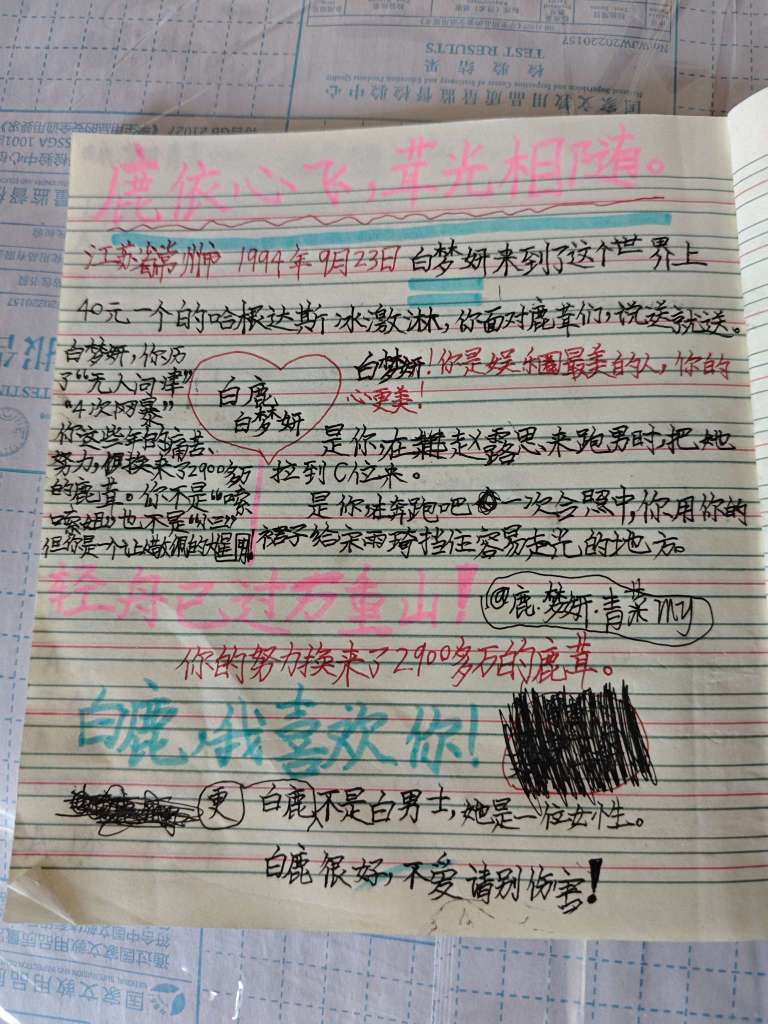 No:WJW20220157
TEST RESULTS
检验结果
国家文教用品质量监督检验中心
鹿依心飞，茸光相随。
江苏省常州市 1994年9月23日 白梦妍来到了这个世界上
40元一个的哈根达斯冰激淋，你面对鹿茸们，说送就送。
白梦妍，你历
了“无人问津”
“4次网暴”
你这些年的痛苦、
努力，但换来了2900多万
的鹿茸。你不是“嗦
嗦姐”也不是“小三”
但你是一个让人敬佩的大星
白鹿
白梦妍
白梦妍！你是娱乐圈最美的人，你的
心更美！
是你在赵露思来跑男时，把她
拉到C位来。
是你进奔跑吧一次合照中，你用你的
裙子给宋雨琦挡住容易走光的地方。
轻舟已过万重山！
@鹿·梦妍·青菜my
你的努力换来了2900多万的鹿茸。
白鹿，我喜欢你！
更 白鹿不是白男士，她是一位女性。
白鹿很好，不爱请别伤害！
国家文教用品